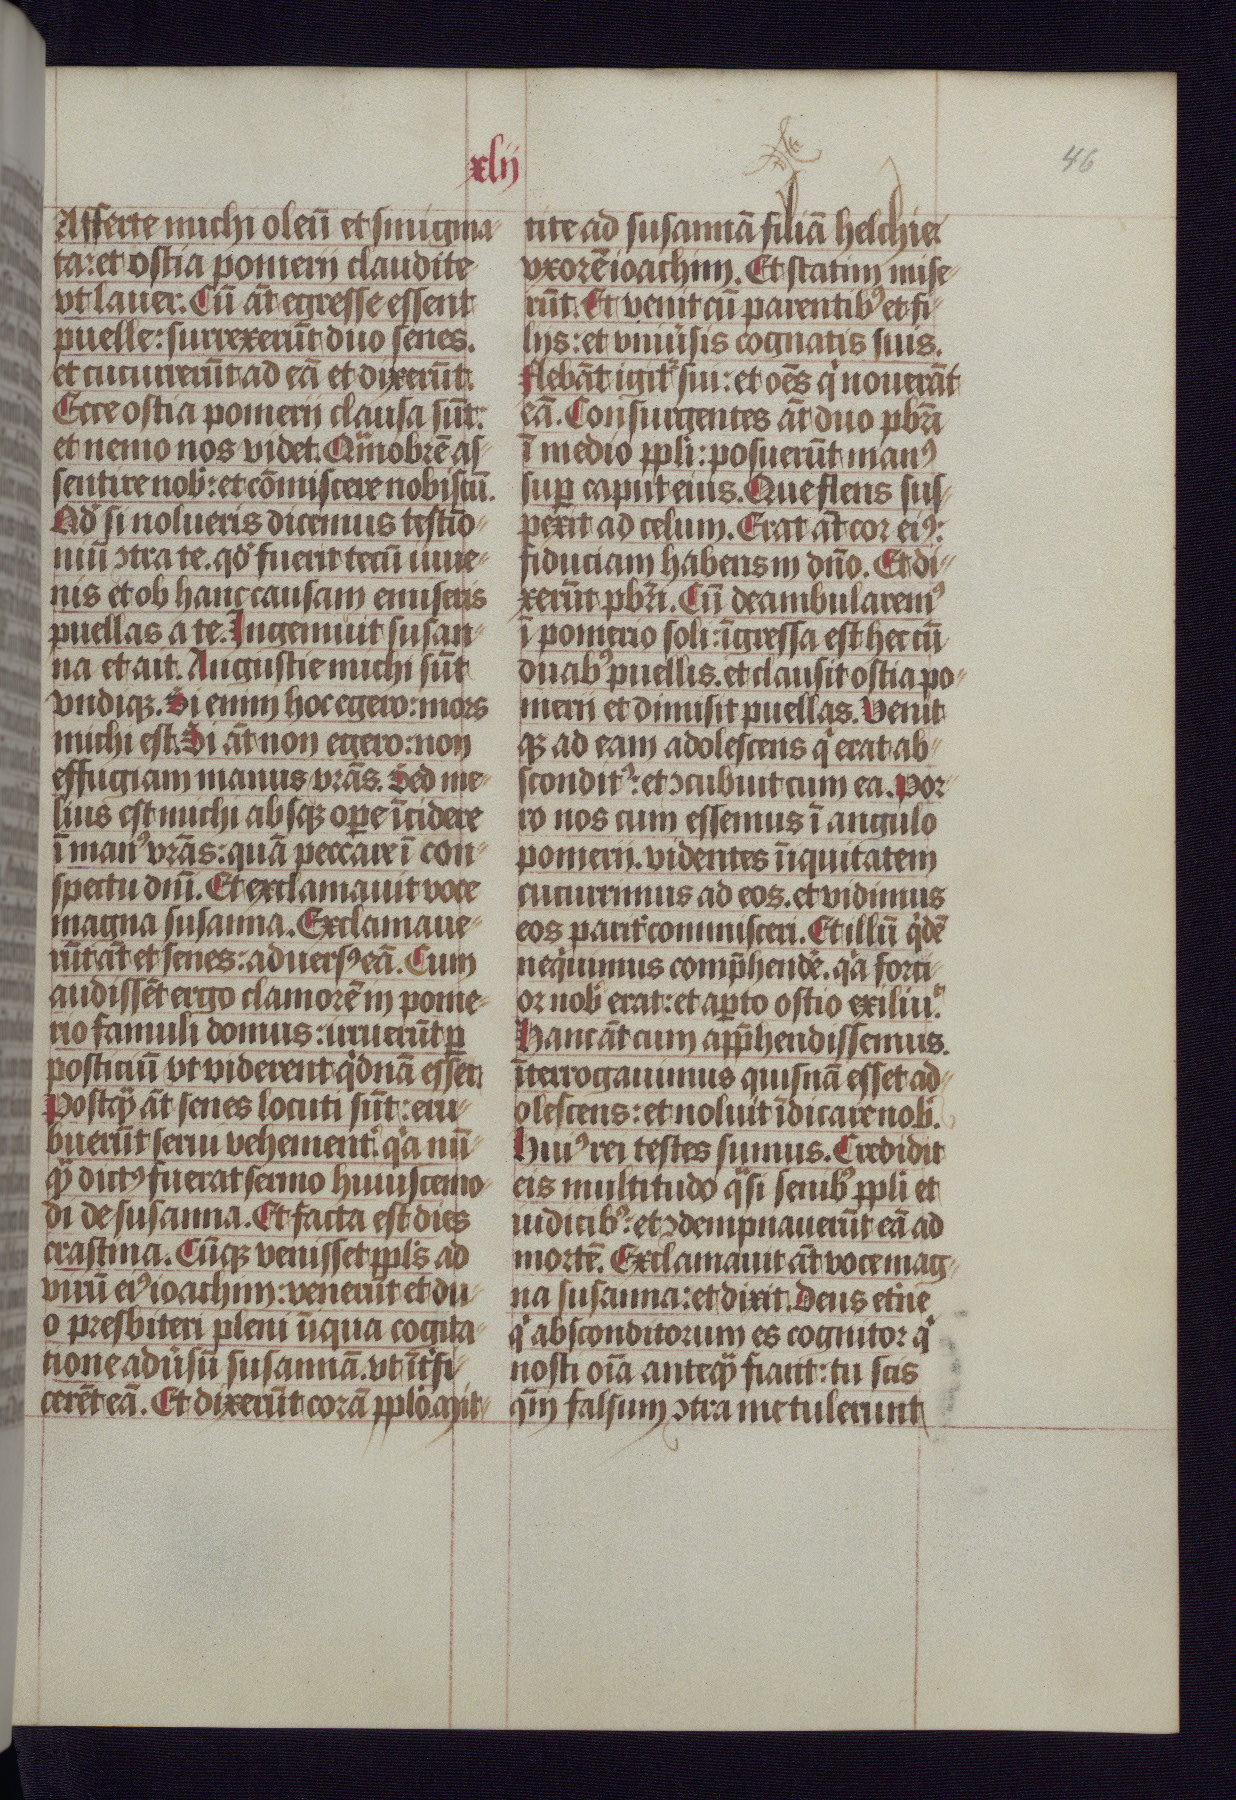 xlij
46
Afferte michi oleū et smigma-
ta: et ostia pomerij claudite
vt lauer. Cū āt egresse essent
puelle: surrexerūt duo senes.
et cucurrerūt ad eā et dixerūt.
Ecce ostia pomerij clausa sūt:
et nemo nos videt. Quāobrē as-
sentire nob̄: et cōmiscere nobiscū.
Qd̓ si nolueris dicemus testīo-
niū ꝯtra te. qd̓ fuerit tecū iuue-
nis et ob hanc causam emiseris
puellas a te. Ingemuit susan-
na et ait. Angustie michi sūt
vndiqꝫ. Si enim hoc egero: mors
michi est. Si āt non egero: non
effugiam manus vrās. Sed me-
lius est michi absqꝫ oꝑe īcidere
ī manꝰ vrās: quā peccare ī con-
spectu dnī. Et exclamauit voce
magna susanna. Exclamaue-
rūt āt et senes: aduersꝰ eā. Cum
audissēt ergo clamorē in pome-
rio famuli domus: irruerūt ꝑ
posticiū vt viderent qͥdnā esset.
Postqͣꝫ āt senes locuti sūt: eru-
buerūt serui vehement̓. qͥa nū-
qͣꝫ dictꝰ fuerat sermo huiuscemo-
di de susanna. Et facta est dies
crastina. Cūqꝫ venisset ppl̓s ad
virū eiꝰ ioachim: venerūt et du-
o presbiteri pleni īiqua cogita-
tione adūsū susannā. vt īt̓fi-
cerēt eā. Et dixerūt corā pplō. Mit-
tite ad susannā filiā helchie.
vxorē ioachim. Et statim mise-
rūt. Et venit cū parentibꝰ et fi-
lijs: et vniūsis cognatis suis.
Flebāt igit̓ sui: et oēs qͥ nouerāt
eā. Consurgentes āt duo pbrī
ī medio ppl̓i: posuerūt manꝰ
suꝑ caput eius. Que flens sus-
pexit ad celum. Erat āt cor eiꝰ:
fiduciam habens in dn̄o. Et di-
xerūt pbrī. Cū deambularemꝰ
ī pomerio soli: īgressa est hec cū
duabꝰ puellis. et clausit ostia po-
merij et dimisit puellas. Venit
qꝫ ad eam adolescens qͥ erat ab-
sconditꝰ: et ꝯcubuit cum ea. Por-
ro nos cum essemus ī angulo
pomerij. videntes īiquitatem
cucurrimus ad eos. et vidimus
eos parit̓ commisceri. Et illū qͥdē
neqͥuimus comp̄hendē. qͥa forci-
or nob̄ erat: et aꝑto ostio exiliuͥt.
Hanc āt cum app̄hendissemus.
īterrogauimus quisnā esset ad-
olescens: et noluit īdicare nob̄.
Huiꝰ rei testes sumus. Credidit
eis multitudo qͣsi senibꝰ ppl̓i et
iudicibꝰ: et ꝯdempnauerūt eā ad
mortē. Exclamauit āt voce mag-
na susanna: et dixit. Deus et̓ne
qͥ absconditorum es cognitor qͥ
nosti oīa anteqͣꝫ fiant: tu scis
qm̄ falsum ꝯtra me tulerunt